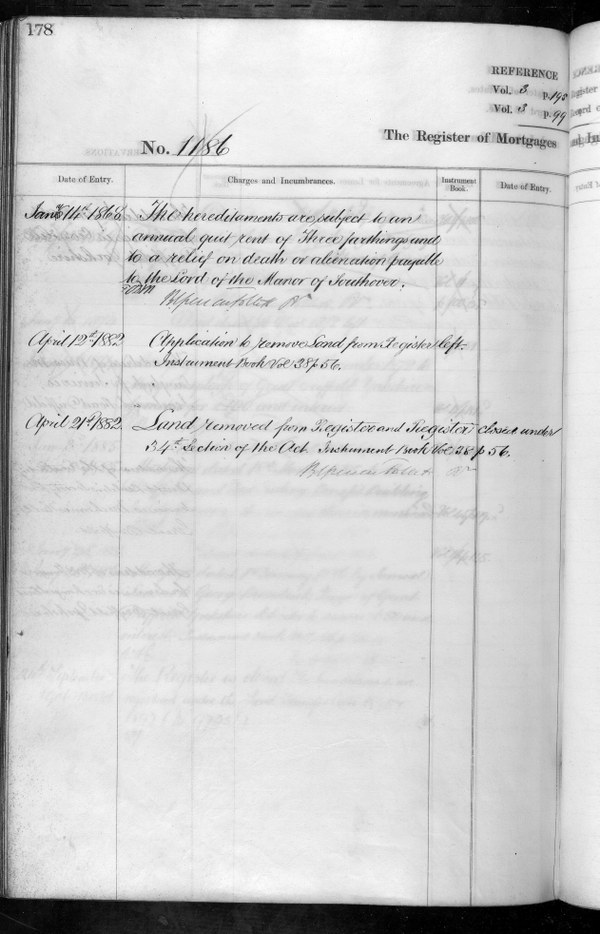 178
REFERENCE
Vol. 3 p. 195
Vol. 3 p. 99
No. 1186
The Register of Mortgages
Date of Entry.
Charges and Incumbrances.
Instrument Book.
Date of Entry.
Jany 14th 1868
The hereditaments are subject to an
annual quit rent of Three farthings and
to a relief on death or alienation payable
to the Lord of the Manor of Southover.
April 12th 1882
Application to remove Land from Register left.
Instrument Book Vol 38 p 56.
April 21st 1882
Land removed from Register and Register closed under
34th Section of the Act Instrument Book Vol 38 p 56.